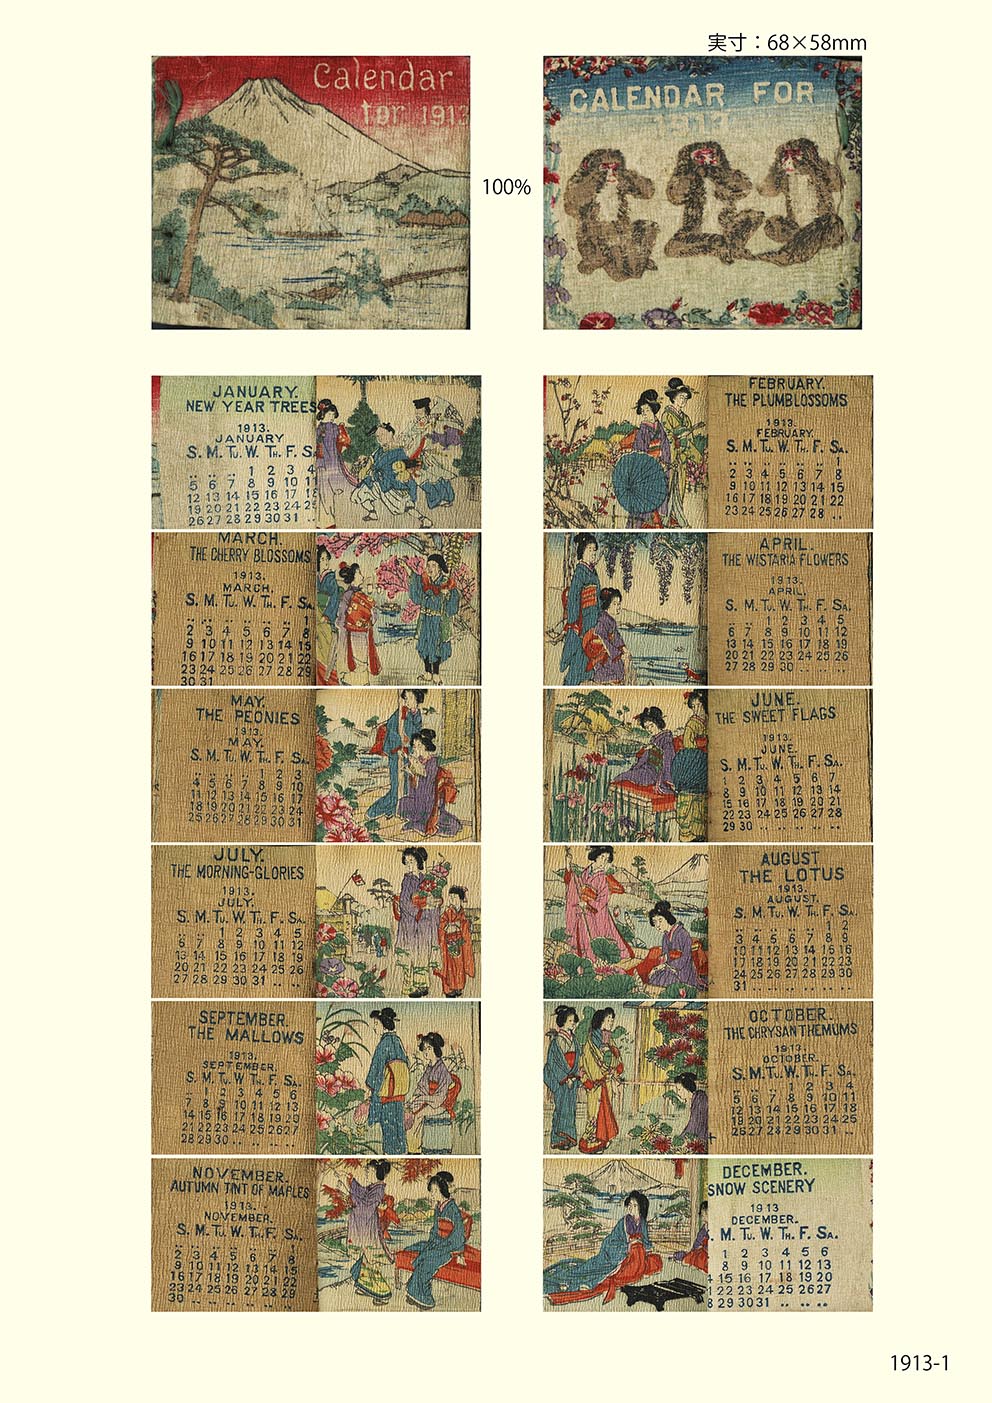 実寸：68×58mm
Calendar
for 1913
100%
CALENDAR FOR
1913
JANUARY.
NEW YEAR TREES
1913.
JANUARY
S. M. TU. W. TH. F. S
.. .. .. 1 2 3 4
5 6 7 8 9 10 11
12 13 14 15 16 17 18
19 20 21 22 23 24 25
26 27 28 29 30 31 ..
FEBRUARY.
THE PLUMBLOSSOMS
1913.
FEBRUARY.
S. M. TU. W. TH. F. SA.
.. .. .. .. .. .. 1
2 3 4 5 6 7 8
9 10 11 12 13 14 15
16 17 18 19 20 21 22
23 24 25 26 27 28 ..
MARCH.
THE CHERRY BLOSSOMS
1913.
MARCH.
S. M. TU. W. TH. F. SA.
.. .. .. .. .. .. 1
2 3 4 5 6 7 8
9 10 11 12 13 14 15
16 17 18 19 20 21 22
23 24 25 26 27 28 29
30 31
APRIL.
THE WISTARIA FLOWERS
1913.
APRIL.
S. M. TU. W. TH. F. SA.
.. .. 1 2 3 4 5
6 7 8 9 10 11 12
13 14 15 16 17 18 19
20 21 22 23 24 25 26
27 28 29 30 .. .. ..
MAY.
THE PEONIES
1913.
MAY.
S. M. TU. W. TH. F. SA.
.. .. .. .. 1 2 3
4 5 6 7 8 9 10
11 12 13 14 15 16 17
18 19 20 21 22 23 24
25 26 27 28 29 30 31
JUNE.
THE SWEET FLAGS
1913.
JUNE.
S. M. TU. W. TH. F. SA.
1 2 3 4 5 6 7
8 9 10 11 12 13 14
15 16 17 18 19 20 21
22 23 24 25 26 27 28
29 30 .. .. .. .. ..
JULY.
THE MORNING-GLORIES
1913.
JULY.
S. M. TU. W. TH. F. SA.
.. .. 1 2 3 4 5
6 7 8 9 10 11 12
13 14 15 16 17 18 19
20 21 22 23 24 25 26
27 28 29 30 31 .. ..
AUGUST
THE LOTUS
1913.
AUGUST.
S. M. TU. W. TH. F. SA.
.. .. .. .. .. 1 2
3 4 5 6 7 8 9
10 11 12 13 14 15 16
17 18 19 20 21 22 23
24 25 26 27 28 29 30
31 .. .. .. .. .. ..
SEPTEMBER.
THE MALLOWS
1913.
SEPTEMBER.
S. M. TU. W. TH. F. SA.
.. 1 2 3 4 5 6
7 8 9 10 11 12 13
14 15 16 17 18 19 20
21 22 23 24 25 26 27
28 29 30 .. .. .. ..
OCTOBER.
THE CHRYSANTHEMUMS
1913.
OCTOBER.
S. M. TU. W. TH. F. SA.
.. .. .. 1 2 3 4
5 6 7 8 9 10 11
12 13 14 15 16 17 18
19 20 21 22 23 24 25
26 27 28 29 30 31 ..
NOVEMBER.
AUTUMN TINT OF MAPLES
1913.
NOVEMBER.
S. M. TU. W. TH. F. SA.
.. .. .. .. .. .. 1
2 3 4 5 6 7 8
9 10 11 12 13 14 15
16 17 18 19 20 21 22
23 24 25 26 27 28 29
30 .. .. .. .. .. ..
DECEMBER.
SNOW SCENERY
1913
DECEMBER.
. M. TU. W. TH. F. SA.
1 2 3 4 5 6
8 9 10 11 12 13
4 15 16 17 18 19 20
22 23 24 25 26 27
8 29 30 31 .. .. ..
1913-1